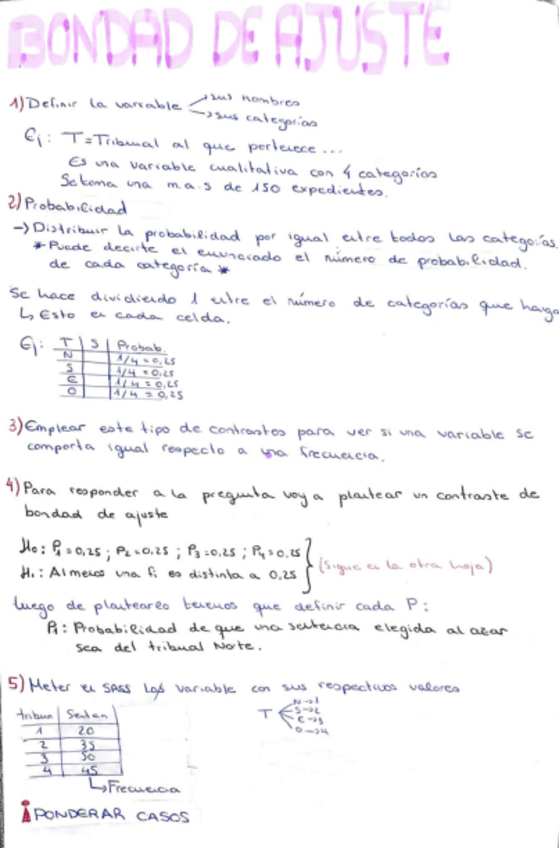 BONDAD DE AJUSTE
1) Definir la variable → sus nombres
→ sus categorías
Ej: T=Tribunal al que pertenece...
Es una variable cualitativa con 4 categorías
Se toma una m.a.s de 150 expedientes.
2) Probabilidad
→ Distribuir la probabilidad por igual entre todas las categorías.
* Puede decirte el enunciado el número de probabilidad.
de cada categoría *
Se hace dividiendo 1 entre el número de categorías que haya
↳ Esto en cada celda.
Ej: T | S | Probab.
N | | 1/4 = 0,25
S | | 1/4 = 0,25
E | | 1/4 = 0,25
O | | 1/4 = 0,25
3) Emplear este tipo de contrastes para ver si una variable se
comporta igual respecto a una frecuencia.
4) Para responder a la pregunta voy a plantear un contraste de
bondad de ajuste
H0: P1=0,25 ; P2=0,25 ; P3=0,25 ; P4=0,25
H1: Al menos una Pi es distinta a 0,25
(sigue en la otra hoja)
Luego de plantearlo tenemos que definir cada P:
P1: Probabilidad de que una sentencia elegida al azar
sea del tribunal Norte.
5) Meter en SPSS las variable con sus respectivos valores
tribun | Senten
1 | 20
2 | 35
3 | 50
4 | 45
↳ Frecuencia
T N→1
S→2
E→3
O→4
¡PONDERAR CASOS